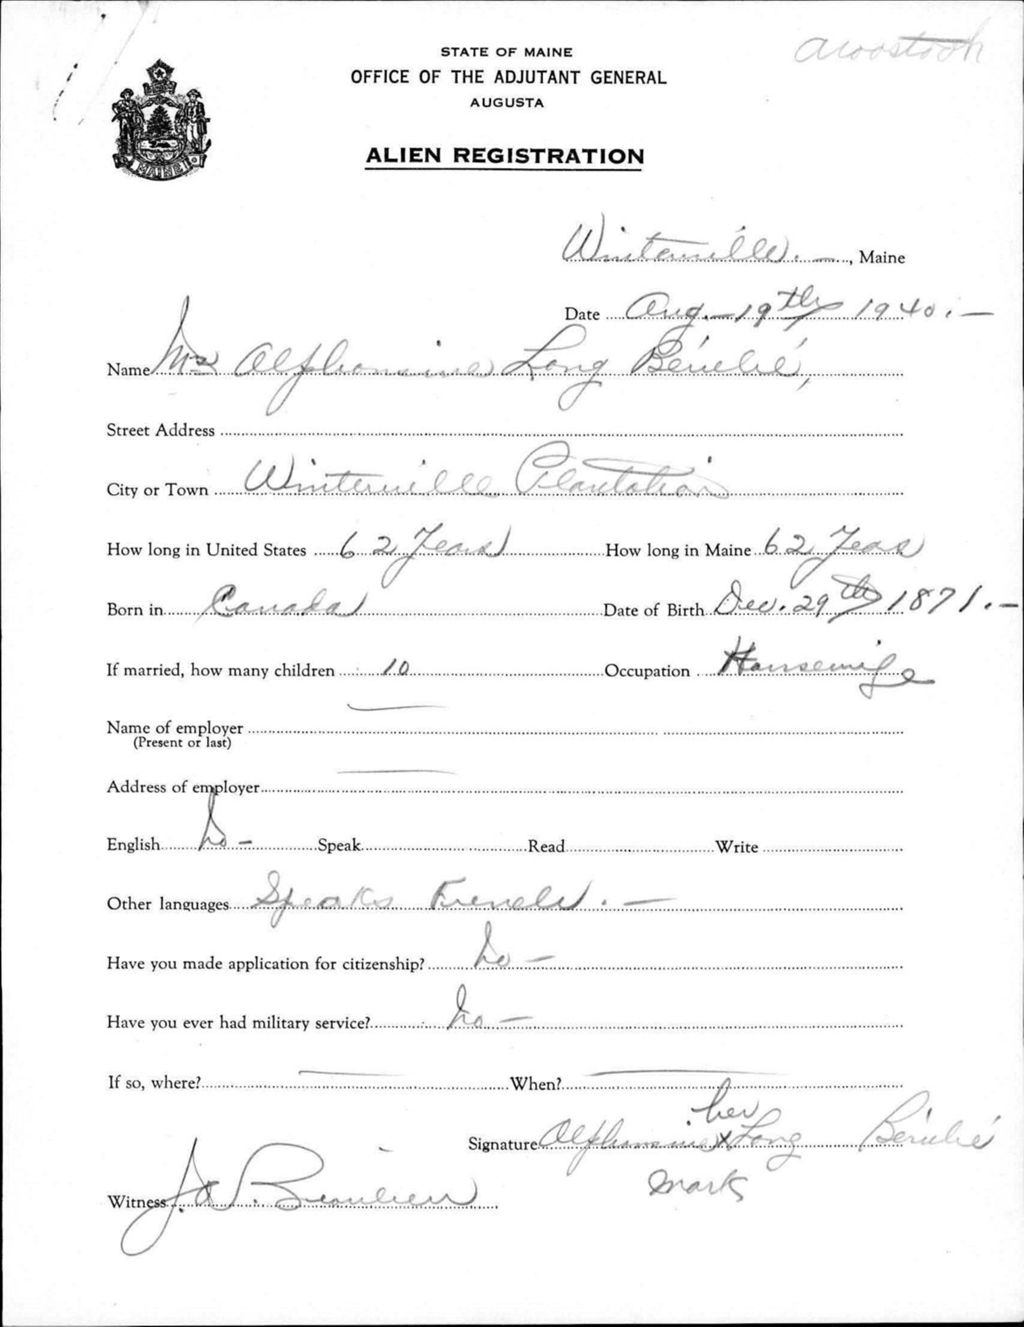 Aroostook
STATE OF MAINE
OFFICE OF THE ADJUTANT GENERAL
AUGUSTA
ALIEN REGISTRATION
MAINE
Winterville. —, Maine
Date Aug. — 19th 1940. —
Name Mrs Alphonsine Long Bérubé,
Street Address
City or Town Winterville Plantation
How long in United States 62 Years How long in Maine 62 Yeas
Born in Canada Date of Birth Dec. 29th 1871. —
If married, how many children 10 Occupation Housewife
Name of employer —
(Present or last)
Address of employer —
English No — Speak Read Write
Other languages Speaks French. —
Have you made application for citizenship? No —
Have you ever had military service? No —
If so, where? — When? —
her
Signature Alphonsine x Long Bérubé
mark
Witness Beaulieu